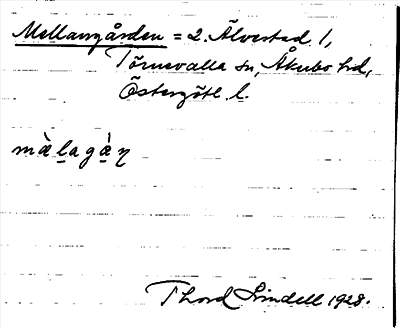 Mellangården = 2. Älvestad 1,
Törnevalla sn, Åkerbo hd,
Östergötl. l.
mὰlagὰŋ
Thord Lindell 1928.